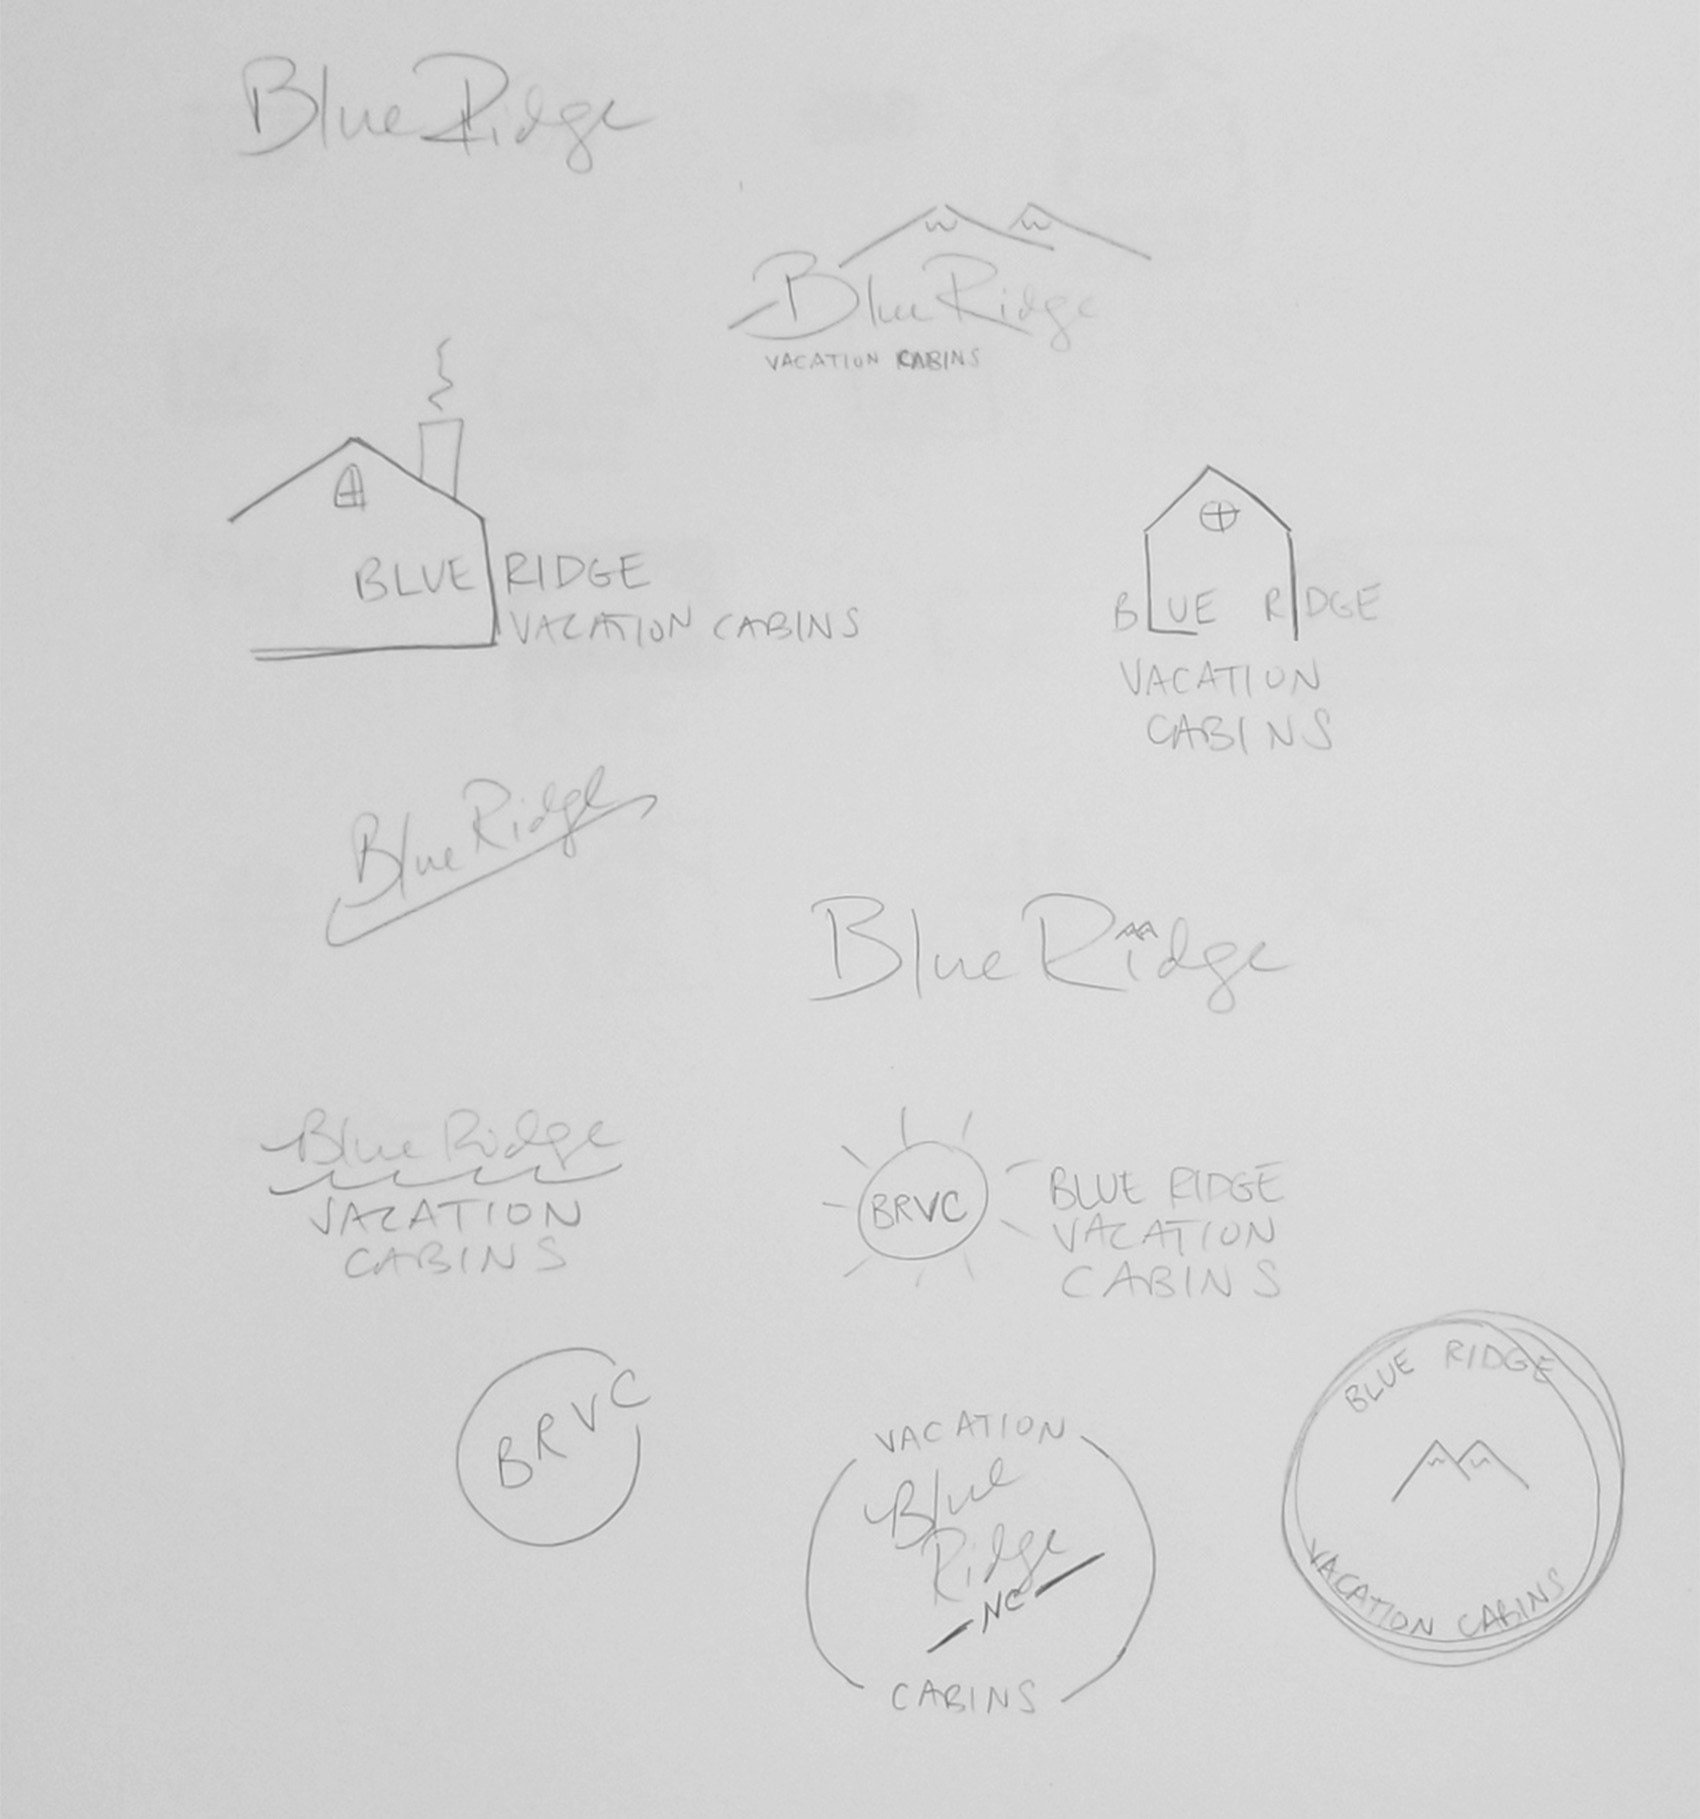 Blue Ridge
Blue Ridge
VACATION CABINS
BLUE RIDGE
VACATION CABINS
BLUE RIDGE
VACATION
CABINS
Blue Ridge
Blue Ridge
Blue Ridge
VACATION
CABINS
BRVC
BLUE RIDGE
VACATION
CABINS
BRVC
VACATION
Blue
Ridge
NC
CABINS
BLUE RIDGE
VACATION CABINS